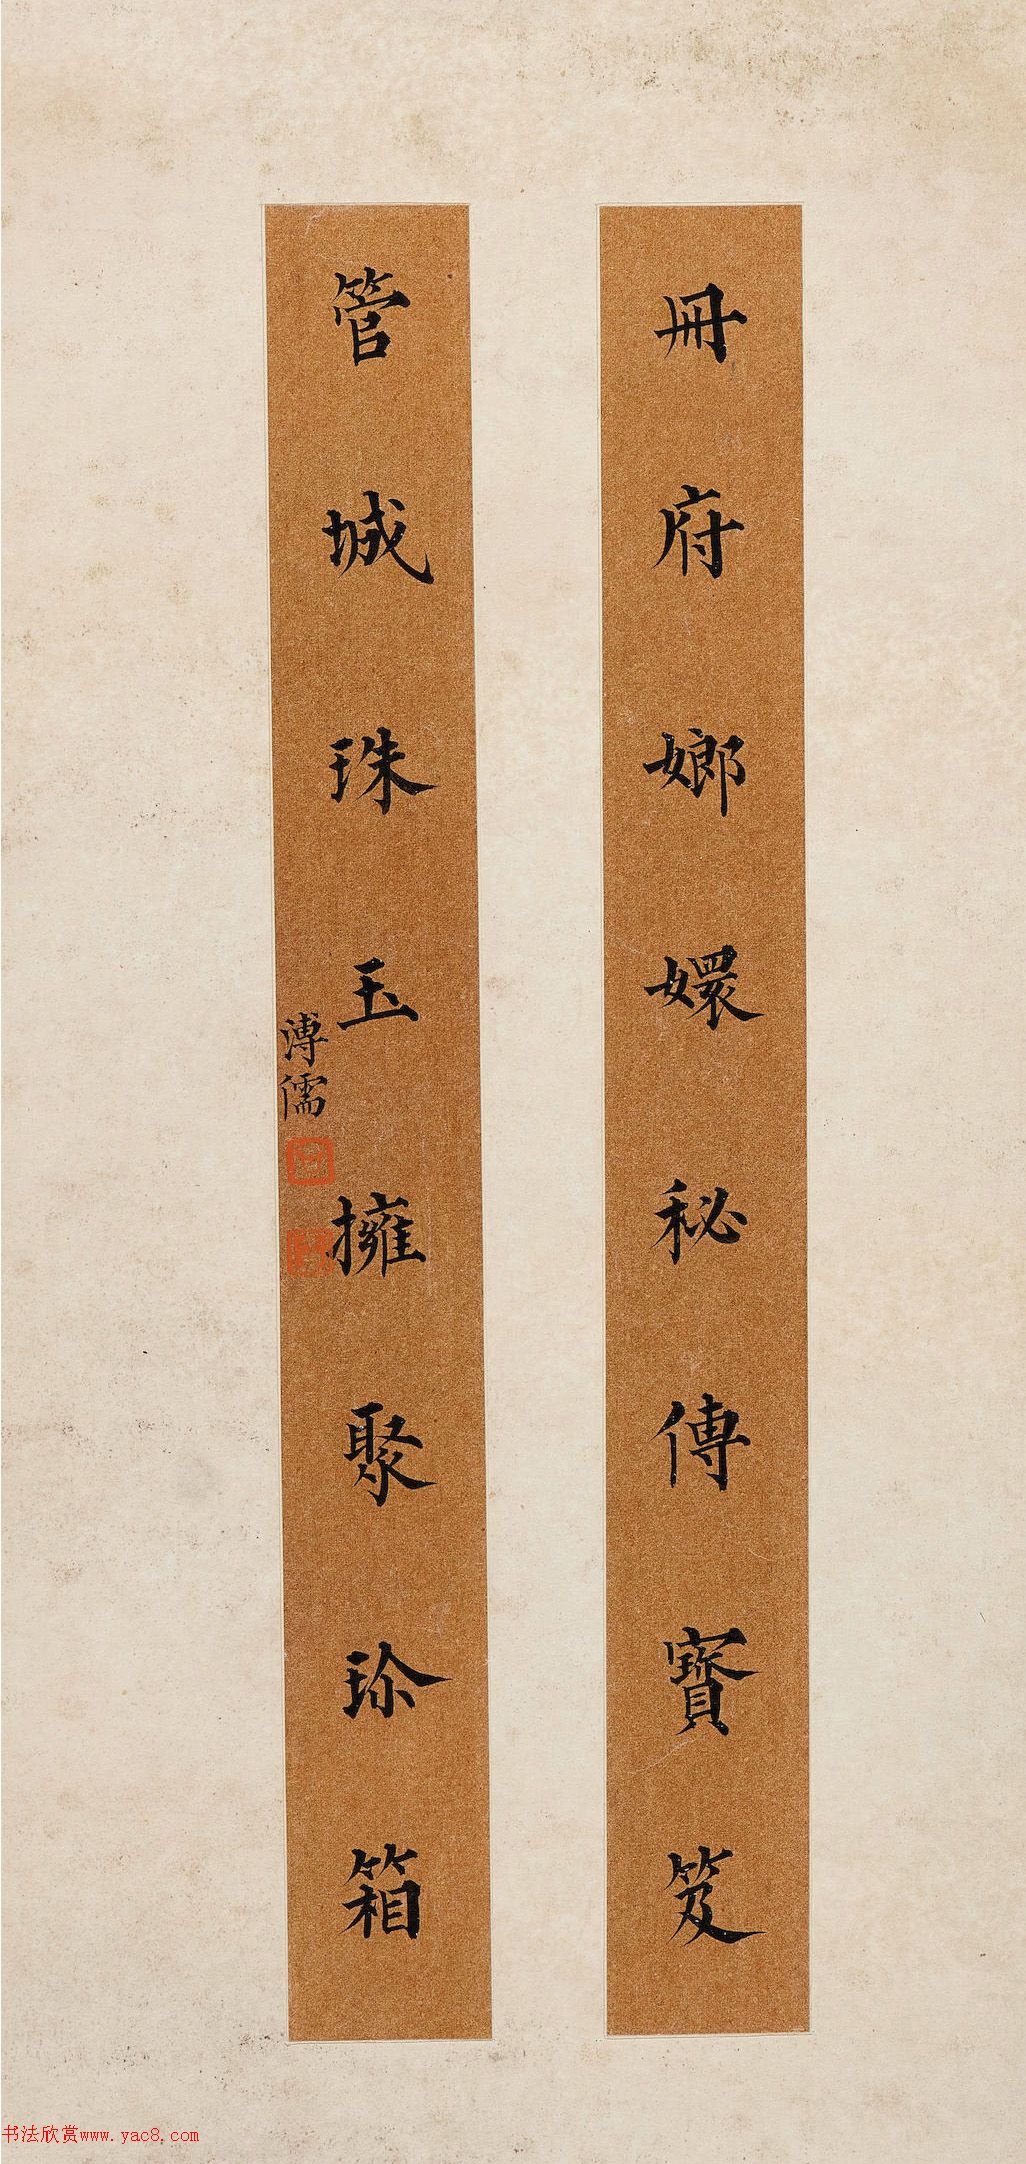 冊府嫏嬛秘傳寶笈
管城珠玉擁聚珍箱
溥儒
书法欣赏www.yac8.com